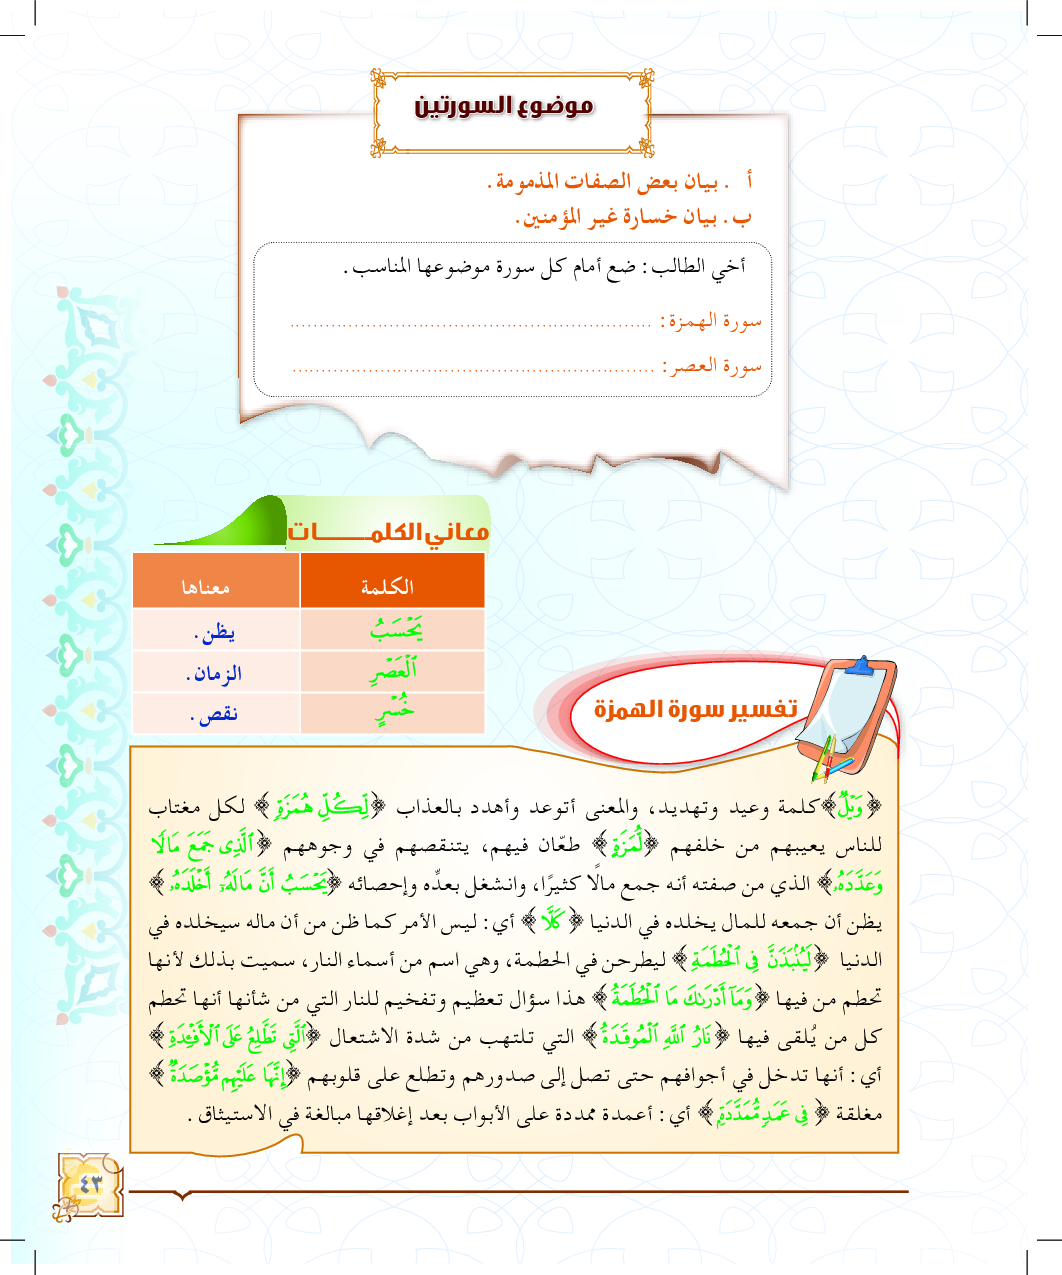 موضوع السورتين
أ . بيان بعض الصفات المذمومة.
ب. بيان خسارة غير المؤمنين.
أخي الطالب: ضع أمام كل سورة موضوعها المناسب.
سورة الهمزة: ..............................................................
سورة العصر: ..............................................................
معاني الكلمـــــات
الكلمة معناها
يَحْسَبُ يظن.
ٱلْعَصْرِ الزمان.
خُسْرٍ نقص.
تفسير سورة الهمزة
﴿وَيْلٌ﴾ كلمة وعيد وتهديد، والمعنى أتوعد وأهدد بالعذاب ﴿لِّكُلِّ هُمَزَةٍ﴾ لكل مغتاب
للناس يعيبهم من خلفهم ﴿لُّمَزَةٍ﴾ طعّان فيهم، يتنقصهم في وجوههم ﴿ٱلَّذِى جَمَعَ مَالًا
وَعَدَّدَهُۥ﴾ الذي من صفته أنه جمع مالًا كثيرًا، وانشغل بعدِّه وإحصائه ﴿يَحْسَبُ أَنَّ مَالَهُۥٓ أَخْلَدَهُۥ﴾
يظن أن جمعه للمال يخلده في الدنيا ﴿كَلَّا﴾ أي: ليس الأمر كما ظن من أن ماله سيخلده في
الدنيا ﴿لَيُنۢبَذَنَّ فِى ٱلْحُطَمَةِ﴾ ليطرحن في الحطمة، وهي اسم من أسماء النار، سميت بذلك لأنها
تحطم من فيها ﴿وَمَآ أَدْرَىٰكَ مَا ٱلْحُطَمَةُ﴾ هذا سؤال تعظيم وتفخيم للنار التي من شأنها أنها تحطم
كل من يُلقى فيها ﴿نَارُ ٱللَّهِ ٱلْمُوقَدَةُ﴾ التي تلتهب من شدة الاشتعال ﴿ٱلَّتِى تَطَّلِعُ عَلَى ٱلْأَفْـِٔدَةِ﴾
أي: أنها تدخل في أجوافهم حتى تصل إلى صدورهم وتطلع على قلوبهم ﴿إِنَّهَا عَلَيْهِم مُّؤْصَدَةٌ﴾
مغلقة ﴿فِى عَمَدٍ مُّمَدَّدَةٍۭ﴾ أي: أعمدة ممددة على الأبواب بعد إغلاقها مبالغة في الاستيثاق.
٤٣